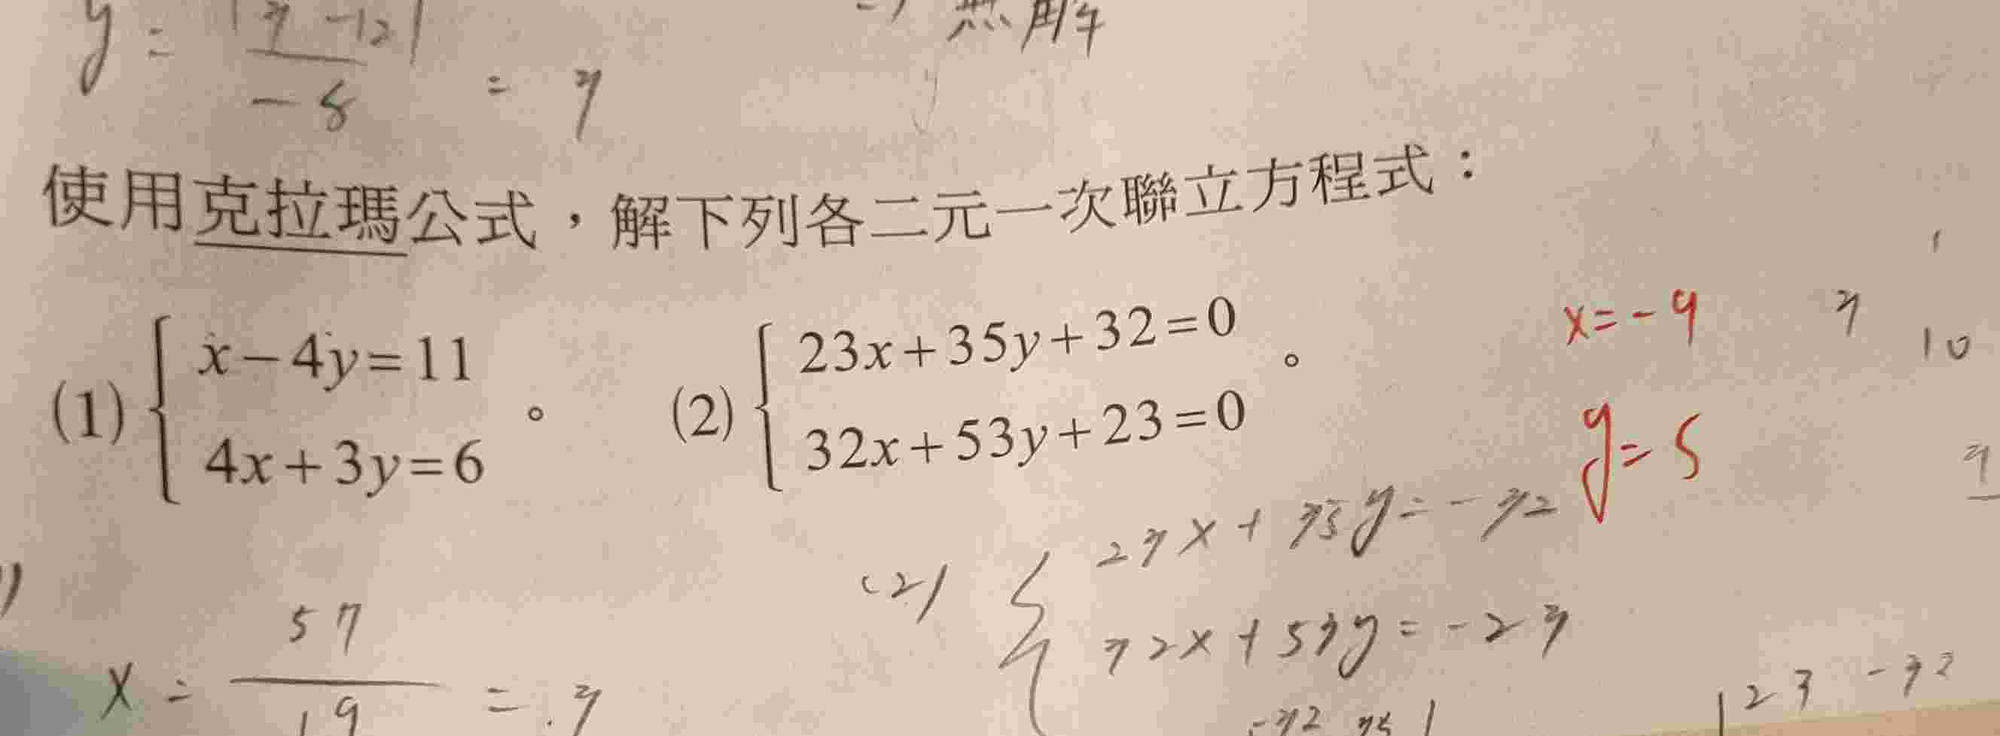 y = |3 -12| / -8 = 3
無解
使用克拉瑪公式，解下列各二元一次聯立方程式：
(1) { x-4y=11
4x+3y=6 。
(2) { 23x+35y+32=0
32x+53y+23=0 。
x=-9
y=5
3
10
x = 57/19 = 3
(2) { 23x+35y=-32
32x+53y=-23
-32 35|
|23 -32